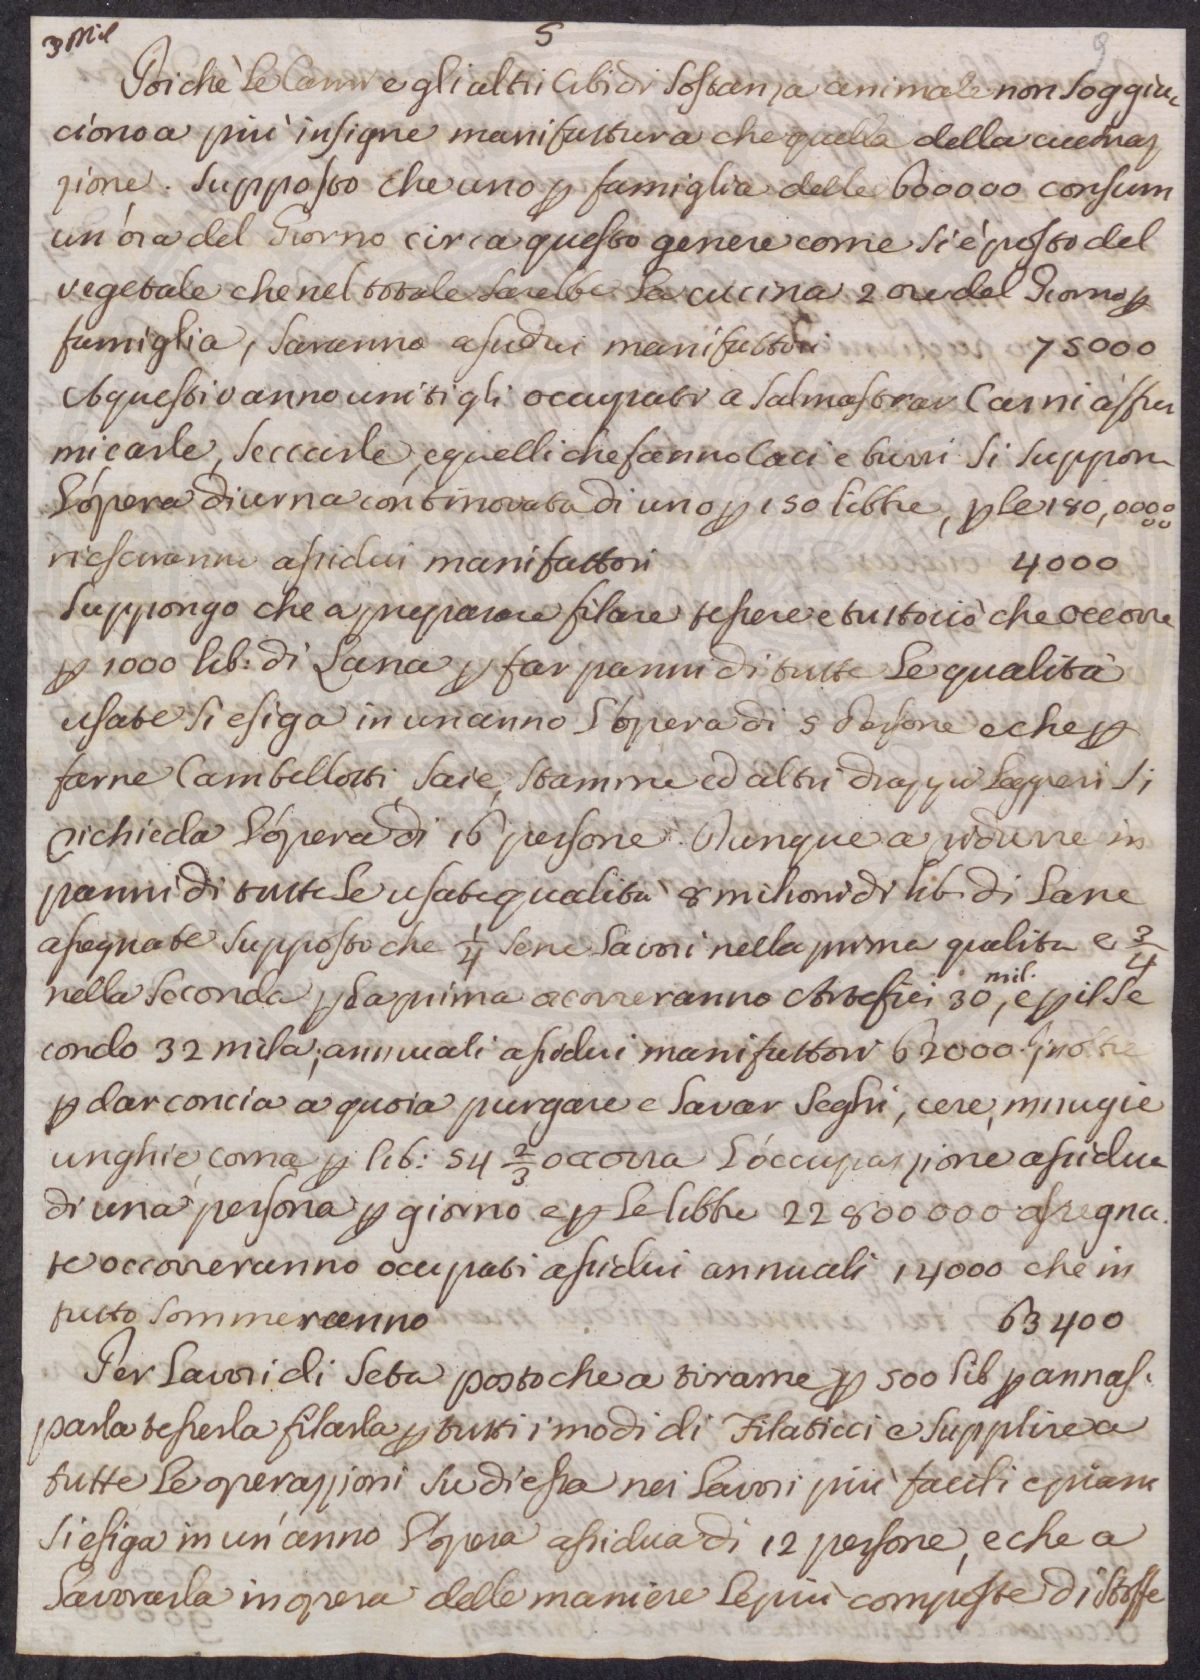 3 Mil
5
9
Poichè le Carni e gli altri Cibi di Sostanza animale non soggia¬
ciono a più insigne manifattura che quella della cucinaz
zione. Supposto che uno ꝑ famiglia delle 600000 consum
un'ora del Giorno circa questo genere come si è posto del
vegetale che nel totale sarebbe la cucina 2 ore del Giorno ꝑ
famiglia, saranno assidui manifattori 75000
A questi vanno uniti gli occupati a salmastrar Carni affu
micarle, seccarle, e quelli che fanno Caci e burri si suppon
l'opera diurna continovata di uno ꝑ 150 libbre, ꝑ le 180,0000
00
riesciranno assidui manifattori 4000
Suppongo che a preparare filare tessere e tuttociò che occorre
ꝑ 1000 lib: di Lana ꝑ far panni di tutte le qualità
usate si esiga in un anno l'opera di 5 Persone e che ꝑ
farne Cambellotti, Saie, Stamine ed altri drappi leggeri si
richieda l'opera di 16 persone. Dunque a ridurre in
panni di tutte le usate qualità 8 milioni di lib. di Lane
assegnate supposto che 1/4 se ne lavori nella prima qualità e 3/4
nella seconda ꝑ la prima occorreranno Artefici 30 mil., e ꝑ il se
condo 32 mila, annuali assidui manifattori 62000. Inoltre
ꝑ dar concia a quoia purgare e lavar Seghi, cere, minugie
unghie, corna ꝑ lib: 54 2/3 occorra l'occupazzione assidua
di una persona ꝑ giorno e ꝑ le libbre 22800000 assegna¬
te occorreranno occupati assidui annuali 14000 che in
tutto sommeranno 63400
Per Lavori di Seta posto che a tirarne ꝑ 500 lib ꝑ annas¬
parla tesserla filarla ꝑ tutti i modi di Filaticci e supplire a
tutte le operazzioni su di essa nei lavori più facili e piani
si esiga in un'anno l'opera assidua di 12 persone, e che a
lavorarla in opera delle maniere le più composte di Stoffe